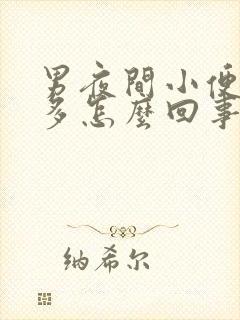 男夜間小便
多怎麽回事
纳希尔